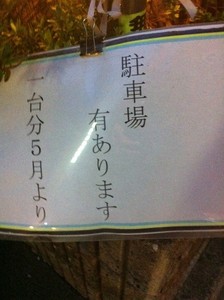 駐車場
有あります
一台分５月より